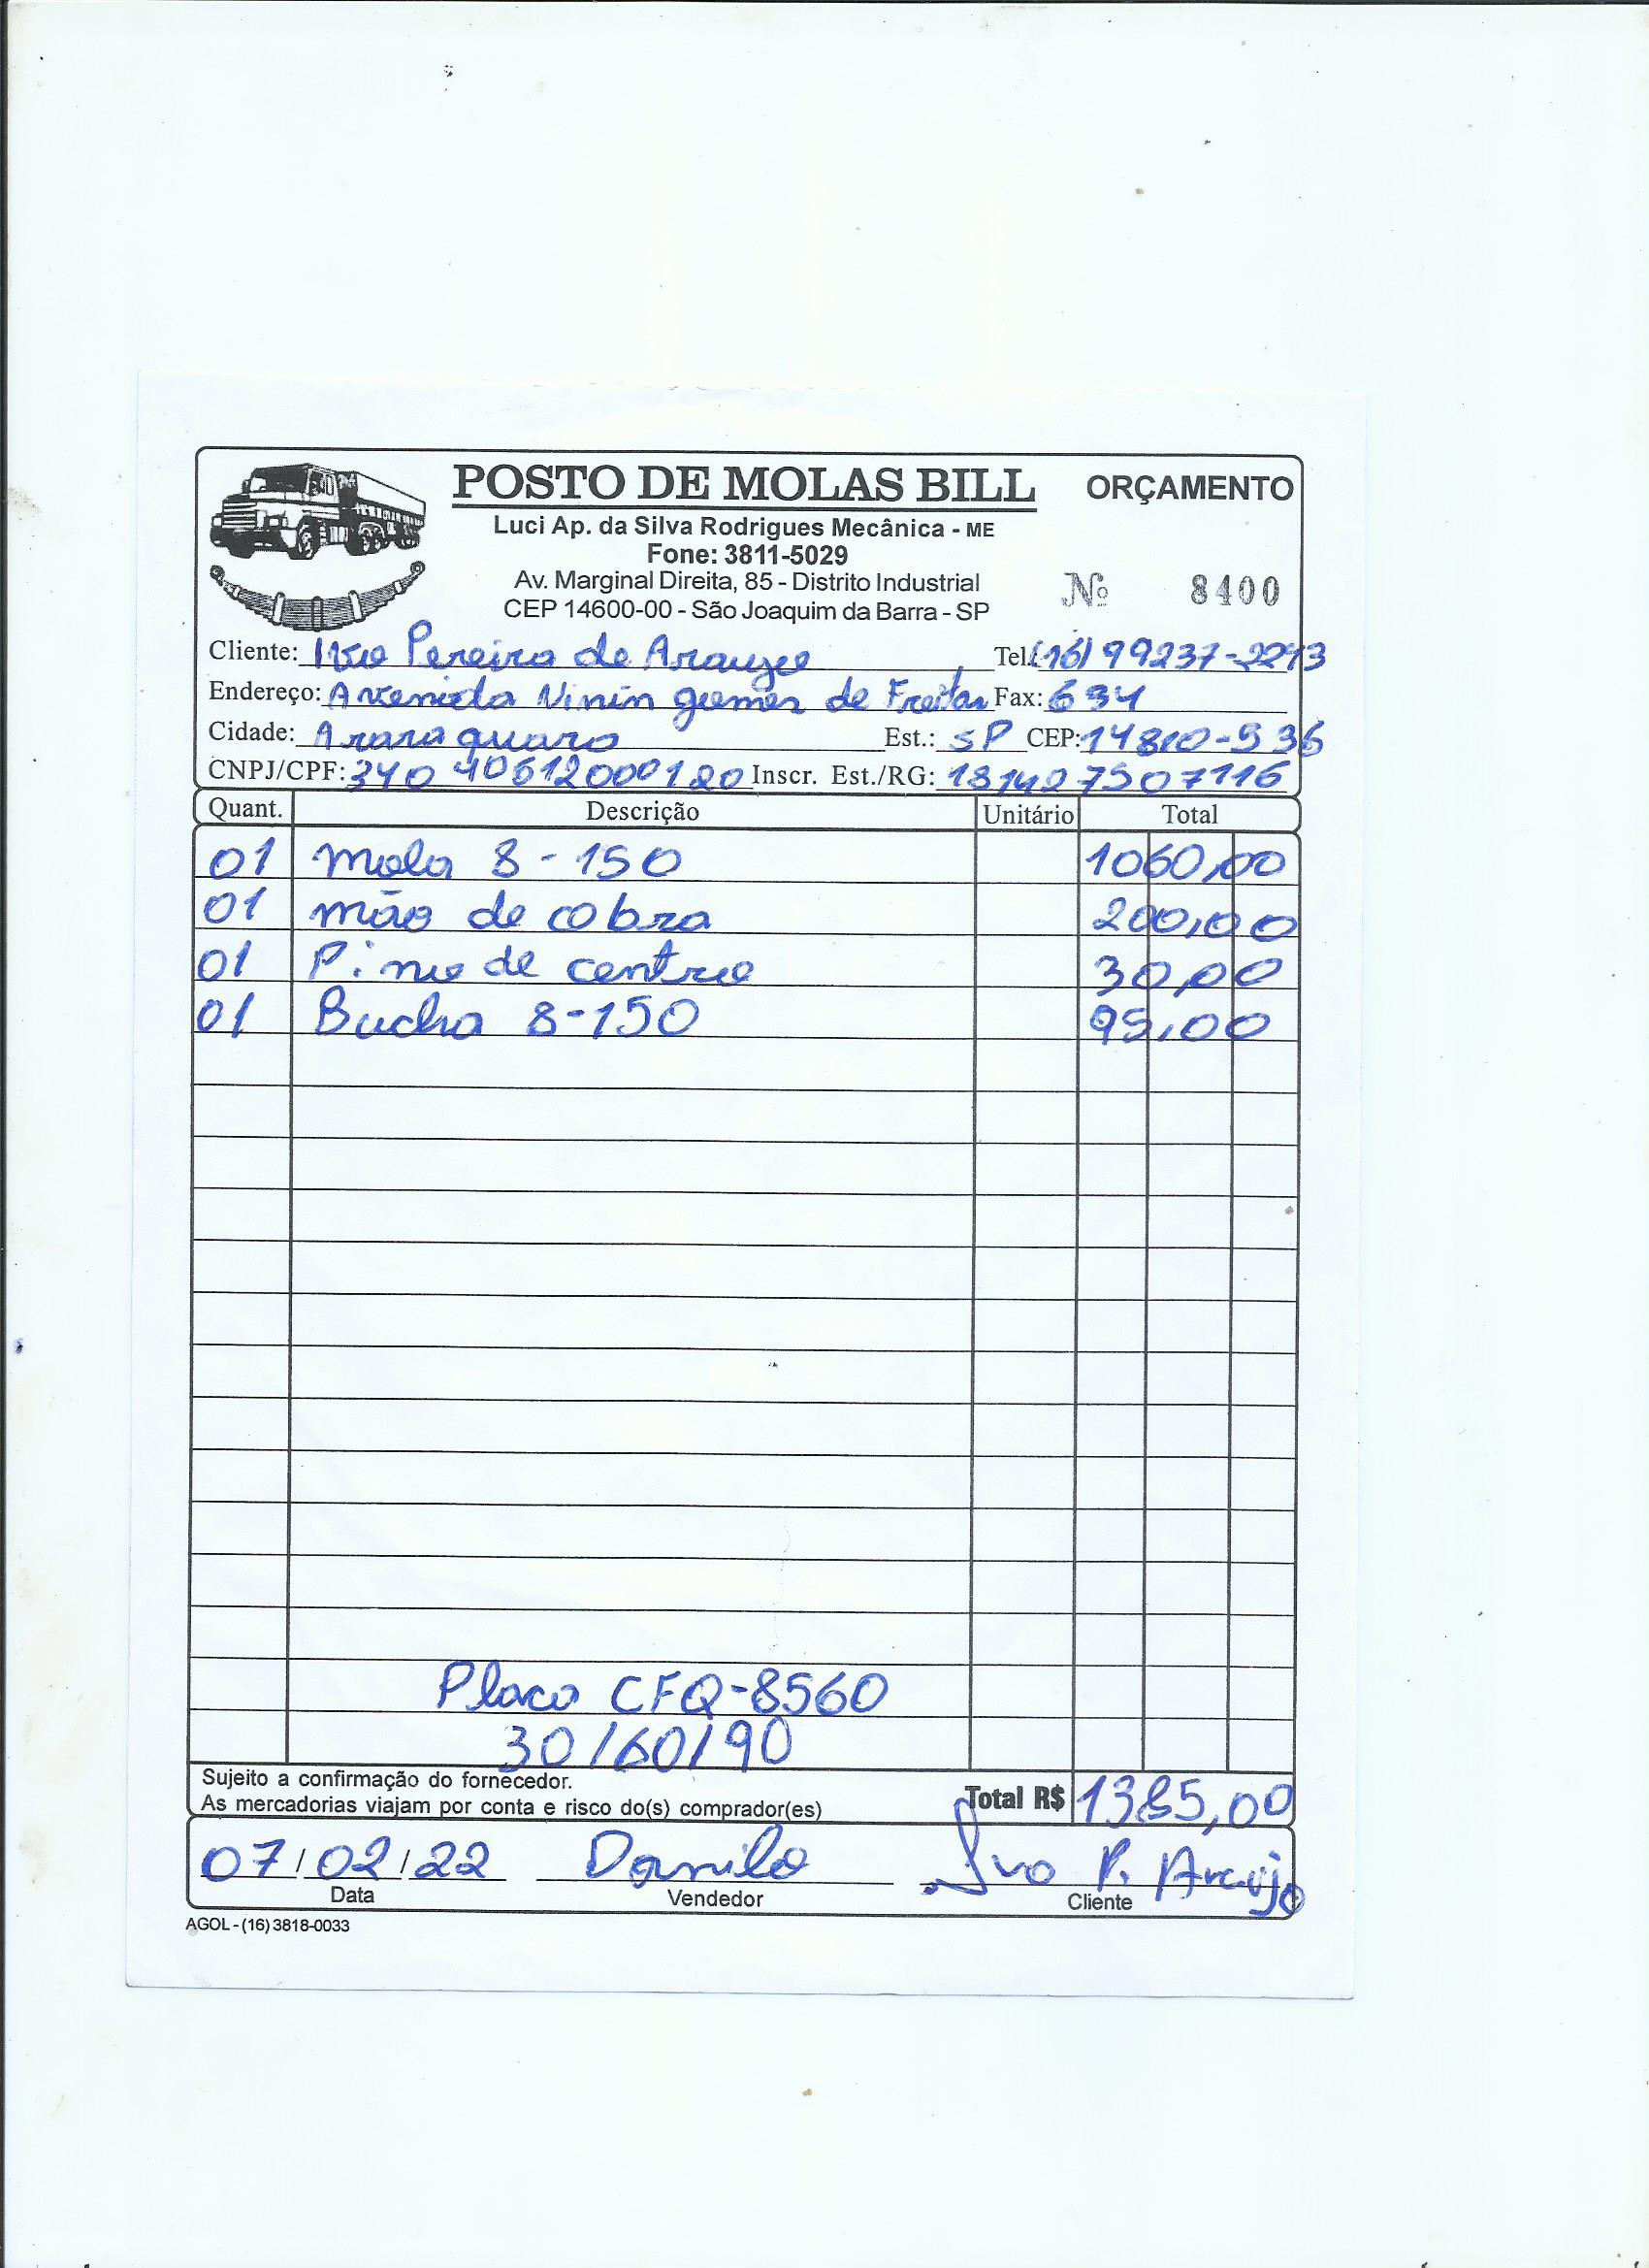 POSTO DE MOLAS BILL ORÇAMENTO
Luci Ap. da Silva Rodrigues Mecânica - ME
Fone: 3811-5029
Av. Marginal Direita, 85 - Distrito Industrial
CEP 14600-00 - São Joaquim da Barra - SP
Nº 8400
Cliente: Ivo Pereira de Araujo Tel.(16) 99237-2273
Endereço: Avenida Ninin gomes de Freitas Fax: 634
Cidade: Araraquara Est.: SP CEP: 14810-936
CNPJ/CPF: 340 40612000120 Inscr. Est./RG: 181427507116
Quant. Descrição Unitário Total
01 mola 8-150 1060,00
01 mão de cobra 200,00
01 Pino de centro 30,00
01 Bucha 8-150 95,00
Placa CFQ-8560
30/60/90
Sujeito a confirmação do fornecedor.
As mercadorias viajam por conta e risco do(s) comprador(es) Total R$ 1385,00
07/02/22 Danilo Ivo P. Araujo
Data Vendedor Cliente
AGOL - (16) 3818-0033